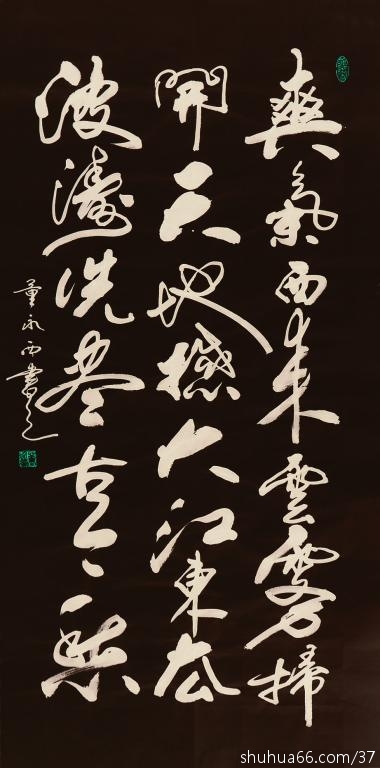 爽氣西來雲霧掃
開天地撼大江東去
波濤洗盡古今愁
董永西書
shuhua66.com/37